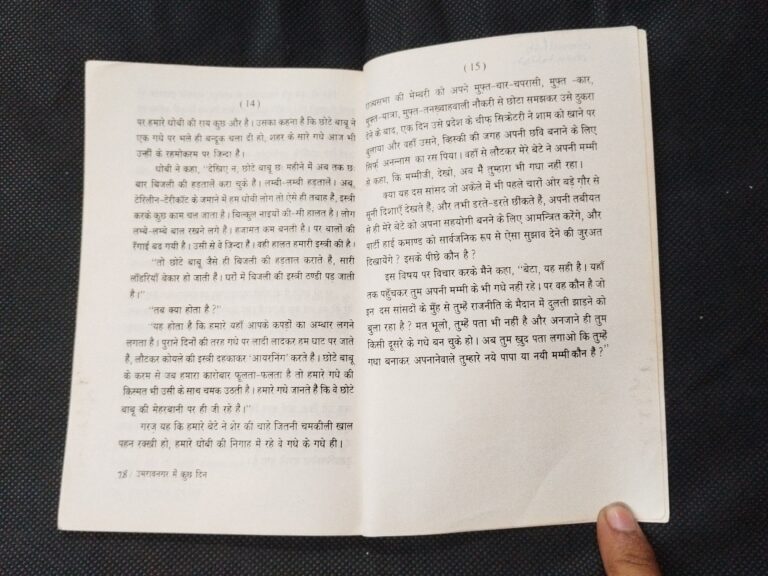 ( 14 )
पर हमारे धोबी की राय कुछ और है। उसका कहना है कि छोटे बाबू ने
एक गधे पर भले ही बन्दूक चला दी हो, शहर के सारे गधे आज भी
उन्हीं के रहमोकरम पर जिन्दा है।
धोबी ने कहा, “देखिए न, छोटे बाबू छः महीने में अब तक छः
बार बिजली की हड़तालें करा चुके है। लम्बी-लम्बी हड़तालें। अब,
टेरिलीन-टेरीकॉट के जमाने में हम धोबी लोग तो ऐसे ही तबाह हैं, इस्त्री
करके कुछ काम चल जाता है। बिल्कुल नाइयों की-सी हालत है। लोग
लम्बे-लम्बे बाल रखने लगे है। हजामत कम बनती है। पर बालों की
रँगाई बढ गयी है। उसी से वे जिन्दा है। वही हालत हमारी इस्त्री की है।
“तो छोटे बाबू जैसे ही बिजली की हड़ताल कराते हैं, सारी
लॉंडरियाँ बेकार हो जाती है। घरों में बिजली की इस्त्री ठण्डी पड़ जाती
है।”
“तब क्या होता है?”
“यह होता है कि हमारे यहाँ आपके कपड़ों का अम्बार लगने
लगता है। पुराने दिनों की तरह गधे पर लादी लादकर हम घाट पर जाते
है, लौटकर कोयले की इस्त्री दहकाकर ‘आयरनिंग’ करते है। छोटे बाबू
के करम से जब हमारा कारोबार फूलता-फलता है तो हमारे गधे की
किस्मत भी उसी के साथ चमक उठती है। हमारे गधे जानते है कि वे छोटे
बाबू की मेहरबानी पर ही जी रहे है।”
गरज यह कि हमारे बेटे ने शेर की चाहे जितनी चमकीली खाल
पहन रक्खी हो, हमारे धोबी की निगाह में रहे वे गधे के गधे ही।
78 / उमरावनगर में कुछ दिन
( 15 )
राज्यसभा की मेम्बरी को अपने मुफ्त-चार-चपरासी, मुफ्त -कार,
मुफ्त-यात्रा, मुफ्त-तनख्वाहवाली नौकरी से छोटा समझकर उसे ठुकरा
देने के बाद, एक दिन उसे प्रदेश के चीफ सिक्रेटरी ने शाम को खाने पर
बुलाया और वहाँ उसने, व्हिस्की की जगह अपनी छवि बनाने के लिए
सिर्फ अनन्नास का रस पिया। वहाँ से लौटकर मेरे बेटे ने अपनी मम्मी
से कहा, कि मम्मीजी, देखो, अब मै तुम्हारा भी गधा नहीं रहा।
क्या यह दस सांसद जो अकेले में भी पहले चारों ओर बड़े गौर से
सूनी दिशाएँ देखते हैं, और तभी डरते-डरते छींकते है, अपनी तबीयत
से ही मेरे बेटे को अपना सहयोगी बनने के लिए आमन्त्रित करेंगे, और
पार्टी हाई कमाण्ड को सार्वजनिक रूप से ऐसा सुझाव देने की जुरअत
दिखायेंगे? इसके पीछे कौन है?
इस विषय पर विचार करके मैंने कहा, “बेटा, यह सही है। यहाँ
तक पहुँचकर तुम अपनी मम्मी के भी गधे नहीं रहे। पर वह कौन है जो
इन दस सांसदों के मुँह से तुम्हें राजनीति के मैदान में दुलती झाडने को
बुला रहा है? मत भूलो, तुम्हें पता भी नही है और अनजाने ही तुम
किसी दूसरे के गधे बन चुके हो। अब तुम खुद पता लगाओ कि तुम्हें
गधा बनाकर अपनानेवाले तुम्हारे नये पापा या नयी मम्मी कौन है?”